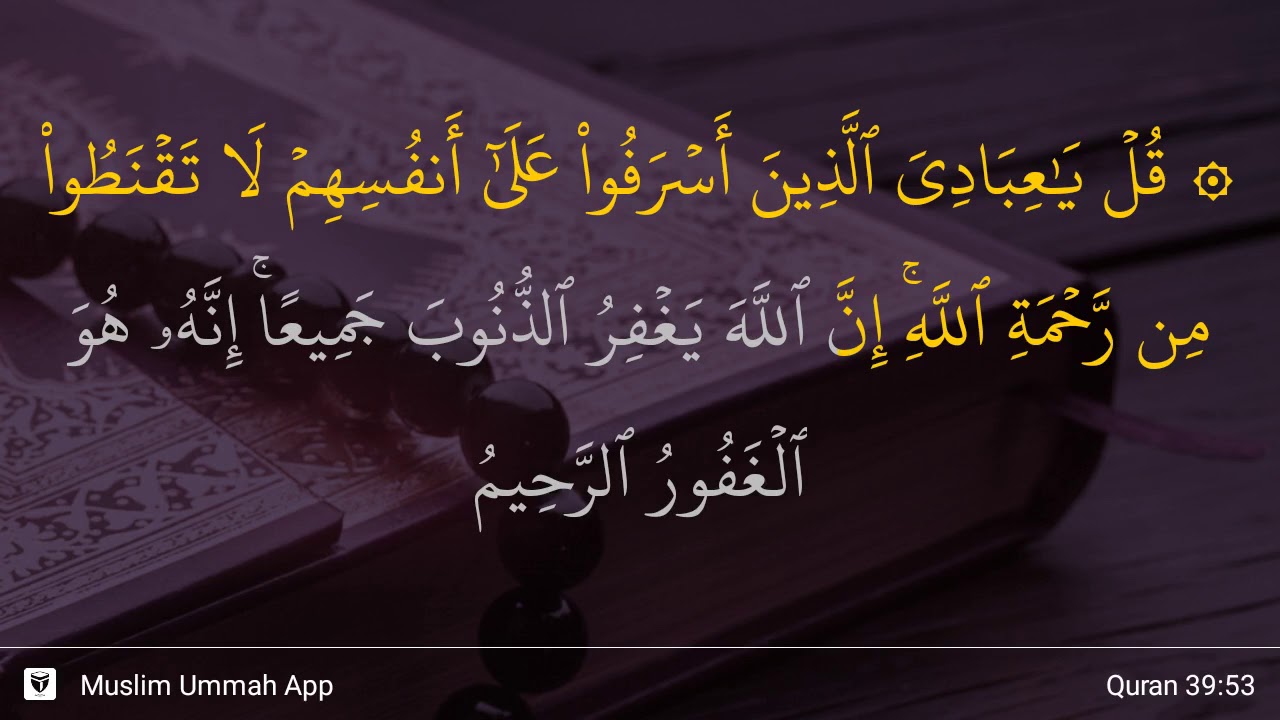 ۞ قُلۡ يَـٰعِبَادِىَ ٱلَّذِينَ أَسۡرَفُواْ عَلَىٰٓ أَنفُسِهِمۡ لَا تَقۡنَطُواْ
مِن رَّحۡمَةِ ٱللَّهِۚ إِنَّ ٱللَّهَ يَغۡفِرُ ٱلذُّنُوبَ جَمِيعًاۚ إِنَّهُۥ هُوَ
ٱلۡغَفُورُ ٱلرَّحِيمُ
Muslim Ummah App
Quran 39:53